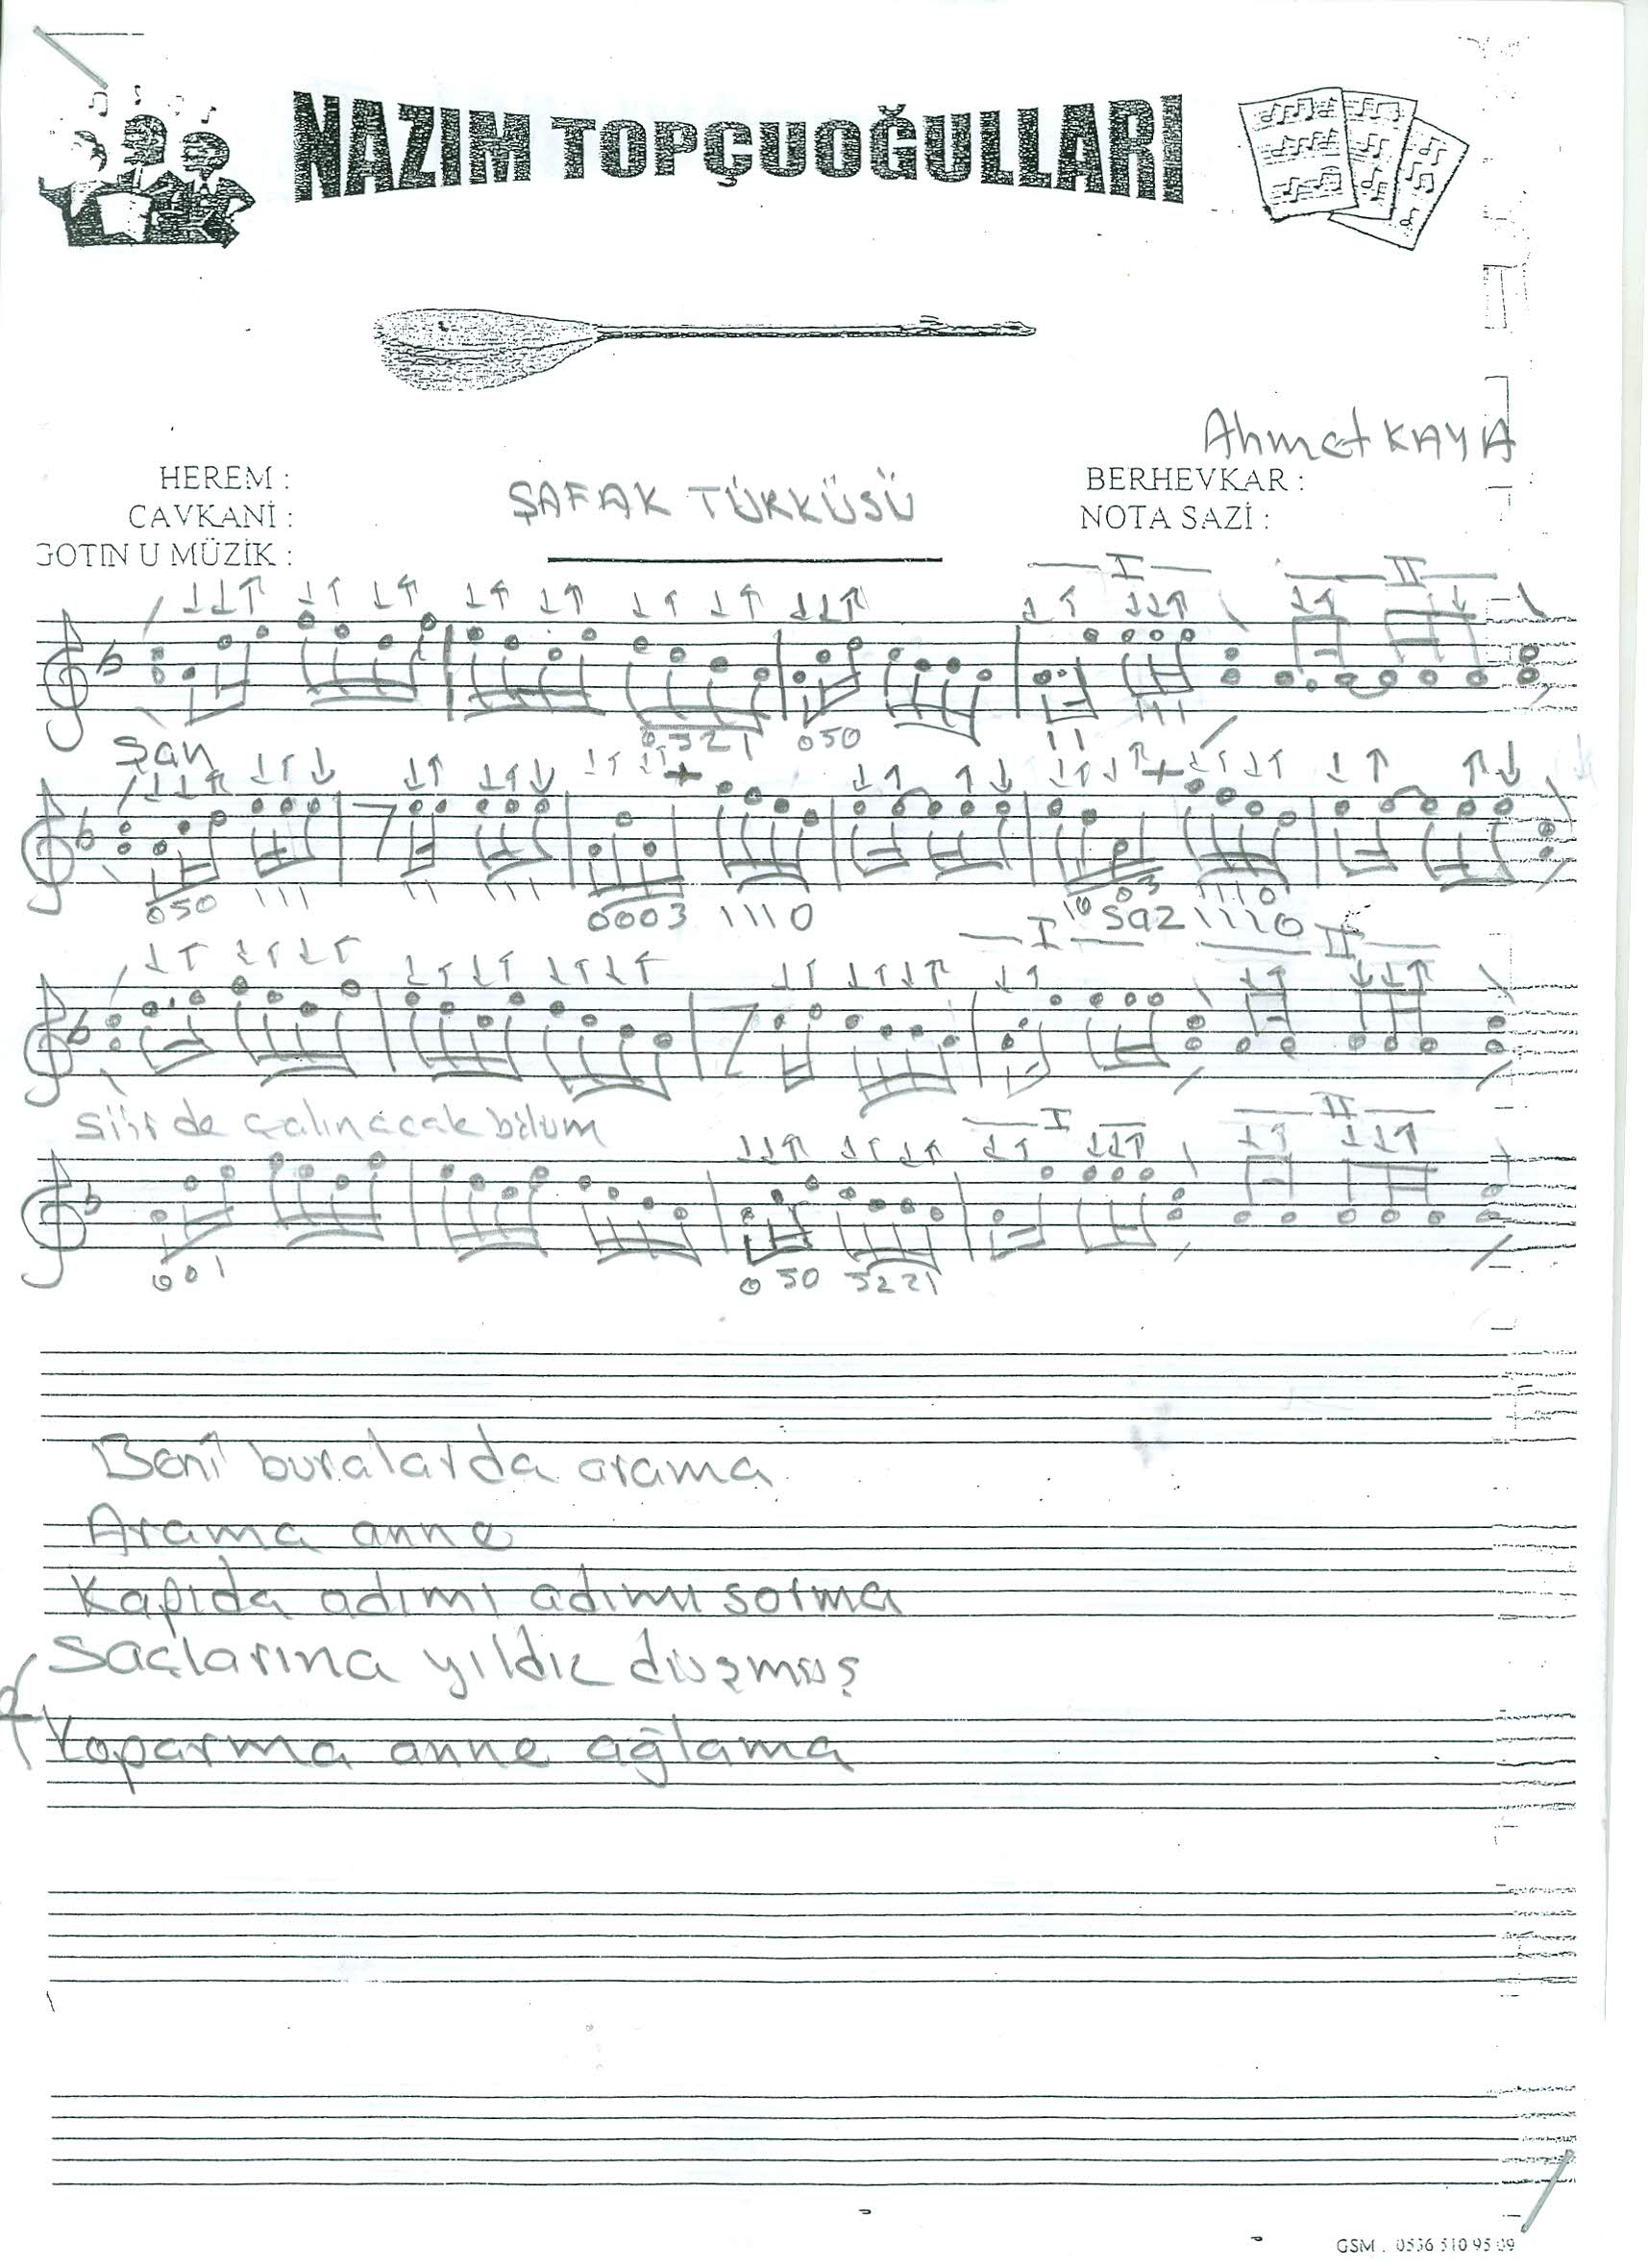 NAZIM TOPÇUOĞULLARI
Ahmet KAYA
HEREM :
ŞAFAK TÜRKÜSÜ
BERHEVKAR :
CAVKANİ :
NOTA SAZİ :
GOTIN U MÜZİK :
I II
0321 050
Şan
050 111 11 111 0003 1110 03 1110
Saz 1110
I II
Şiirde çalınacak bölüm
I II
001 050 3221
Beni buralarda arama
Arama anne
Kapıda adımı adımı sorma
Saçlarına yıldız düşmüş
Koparma anne ağlama
GSM : 0536 510 95 09